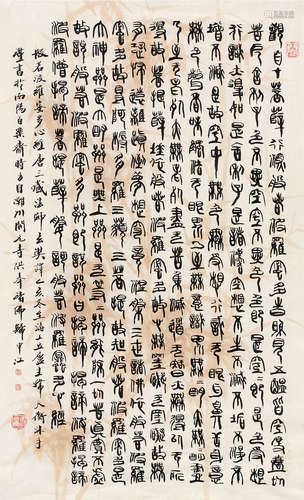 觀自在菩薩行深般若波羅蜜多時照見五蘊皆空度一切
苦厄舍利子色不異空空不異色色即是空空即是色受想行
識亦復如是舍利子是諸法空相不生不滅不垢不淨不
增不減是故空中無色無受想行識無眼耳鼻舌身意
無色聲香味觸法無眼界乃至無意識界無無明亦無無明盡
乃至無老死亦無老死盡無苦集滅道無智亦無得以無所得
故菩提薩埵依般若波羅蜜多故心無罣礙無罣礙故無有恐
怖遠離顛倒夢想究竟涅槃三世諸佛依般若波羅蜜
多故得阿耨多羅三藐三菩提故知般若波羅蜜多是
大神咒是大明咒是無上咒是無等等咒能除一切苦真實不虛
故說般若波羅蜜多咒即說咒曰揭諦揭諦波羅揭諦波
羅僧揭諦菩提薩婆訶般若波羅蜜多心經
般若波羅蜜多心經唐三藏法師玄奘譯乙亥
書於白樂齋時方自潮州開元寺諸佛歸申江